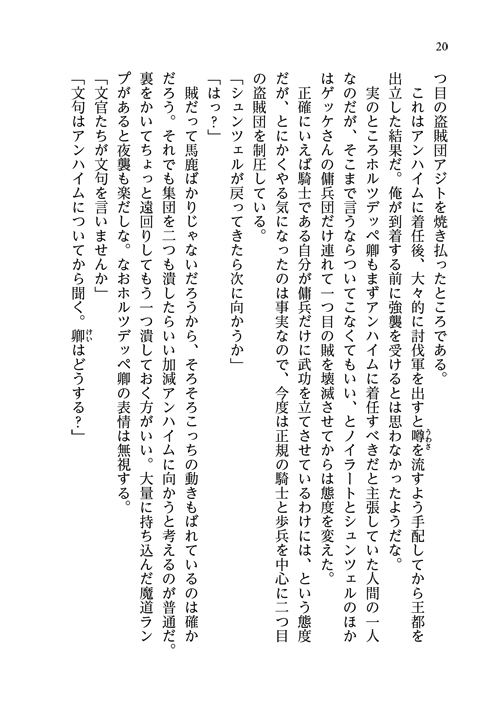 20
つ目の盗賊団アジトを焼き払ったところである。
これはアンハイムに着任後、大々的に討伐軍を出すと噂を流すよう手配してから王都を
出立した結果だ。俺が到着する前に強襲を受けるとは思わなかったようだな。
実のところホルツデッペ卿もまずアンハイムに着任すべきだと主張していた人間の一人
なのだが、そこまで言うならついてこなくてもいい、とノイラートとシュンツェルのほか
はゲッケさんの傭兵団だけ連れて一つ目の賊を壊滅させてからは態度を変えた。
正確にいえば騎士である自分が傭兵だけに武功を立てさせているわけには、という態度
だが、とにかくやる気になったのは事実なので、今度は正規の騎士と歩兵を中心に二つ目
の盗賊団を制圧している。
「シュンツェルが戻ってきたら次に向かうか」
「はっ？」
賊だって馬鹿ばかりじゃないだろうから、そろそろこっちの動きもばれているのは確か
だろう。それでも集団を二つも潰したらいい加減アンハイムに向かうと考えるのが普通だ。
裏をかいてちょっと遠回りしてもう一つ潰しておく方がいい。大量に持ち込んだ魔道ラン
プがあると夜襲も楽だしな。なおホルツデッペ卿の表情は無視する。
「文官たちが文句を言いませんか」
「文句はアンハイムについてから聞く。卿はどうする？」